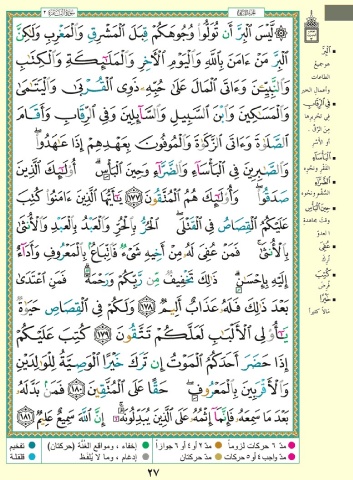 لَّيْسَ ٱلْبِرَّ أَن تُوَلُّوا۟ وُجُوهَكُمْ قِبَلَ ٱلْمَشْرِقِ وَٱلْمَغْرِبِ وَلَٰكِنَّ
ٱلْبِرَّ مَنْ ءَامَنَ بِٱللَّهِ وَٱلْيَوْمِ ٱلْءَاخِرِ وَٱلْمَلَٰٓئِكَةِ وَٱلْكِتَٰبِ
وَٱلنَّبِيِّۦنَ وَءَاتَى ٱلْمَالَ عَلَىٰ حُبِّهِۦ ذَوِى ٱلْقُرْبَىٰ وَٱلْيَتَٰمَىٰ
وَٱلْمَسَٰكِينَ وَٱبْنَ ٱلسَّبِيلِ وَٱلسَّآئِلِينَ وَفِى ٱلرِّقَابِ وَأَقَامَ
ٱلصَّلَوٰةَ وَءَاتَى ٱلزَّكَوٰةَ وَٱلْمُوفُونَ بِعَهْدِهِمْ إِذَا عَٰهَدُوا۟ۖ
وَٱلصَّٰبِرِينَ فِى ٱلْبَأْسَآءِ وَٱلضَّرَّآءِ وَحِينَ ٱلْبَأْسِۗ أُو۟لَٰٓئِكَ ٱلَّذِينَ
صَدَقُوا۟ۖ وَأُو۟لَٰٓئِكَ هُمُ ٱلْمُتَّقُونَ ١٧٧ يَٰٓأَيُّهَا ٱلَّذِينَ ءَامَنُوا۟ كُتِبَ
عَلَيْكُمُ ٱلْقِصَاصُ فِى ٱلْقَتْلَىۖ ٱلْحُرُّ بِٱلْحُرِّ وَٱلْعَبْدُ بِٱلْعَبْدِ وَٱلْأُنثَىٰ
بِٱلْأُنثَىٰۚ فَمَنْ عُفِىَ لَهُۥ مِنْ أَخِيهِ شَىْءٌ فَٱتِّبَاعٌۢ بِٱلْمَعْرُوفِ وَأَدَآءٌ
إِلَيْهِ بِإِحْسَٰنٍۗ ذَٰلِكَ تَخْفِيفٌ مِّن رَّبِّكُمْ وَرَحْمَةٌۗ فَمَنِ ٱعْتَدَىٰ
بَعْدَ ذَٰلِكَ فَلَهُۥ عَذَابٌ أَلِيمٌ ١٧٨ وَلَكُمْ فِى ٱلْقِصَاصِ حَيَوٰةٌ
يَٰٓأُو۟لِى ٱلْأَلْبَٰبِ لَعَلَّكُمْ تَتَّقُونَ ١٧٩ كُتِبَ عَلَيْكُمْ
إِذَا حَضَرَ أَحَدَكُمُ ٱلْمَوْتُ إِن تَرَكَ خَيْرًا ٱلْوَصِيَّةُ لِلْوَٰلِدَيْنِ
وَٱلْأَقْرَبِينَ بِٱلْمَعْرُوفِۖ حَقًّا عَلَى ٱلْمُتَّقِينَ ١٨٠ فَمَنۢ بَدَّلَهُۥ
بَعْدَ مَا سَمِعَهُۥ فَإِنَّمَآ إِثْمُهُۥ عَلَى ٱلَّذِينَ يُبَدِّلُونَهُۥٓۚ إِنَّ ٱللَّهَ سَمِيعٌ عَلِيمٌ ١٨١
ٱلْبِرَّ
هو جميع
الطاعات
وأعمال الخير
فِى ٱلرِّقَابِ
في تحريرها
من الرّق
أو الأسر
ٱلْبَأْسَآءِ
الفقر ونحوه
ٱلضَّرَّآءِ
السّقم ونحوه
حِينَ ٱلْبَأْسِ
وقت مجاهدة
العدو
عُفِىَ
تُرك
كُتِبَ
فُرض
خَيْرًا
مالاً كثيراً
مدّ ٦ حركات لزوماً مدّ ٢ أو ٤ أو ٦ جوازاً إخفاء، ومواقع الغُنَّة (حركتان) تفخيم
مدّ واجب ٤ أو ٥ حركات مدّ حركتان إدغام، وما لا يُلفَظ قلقلة
٢٧